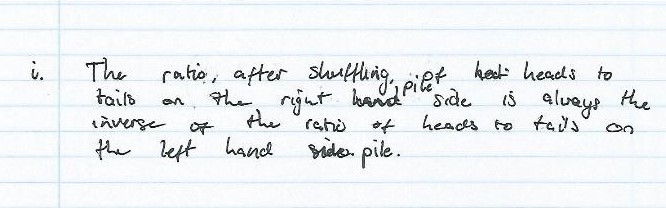 i. The ratio, after shuffling, of heads to
tails on the right hand pile side is always the
inverse of the ratio of heads to tails on
the left hand side pile.